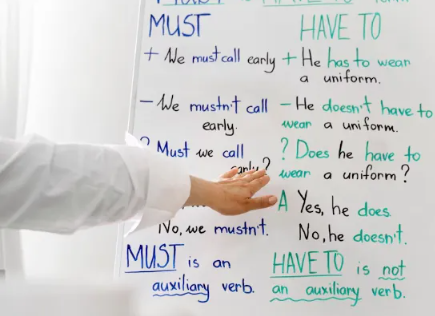 MUST
+ We must call early
− We mustn't call
early.
? Must we call
early?
No, we mustn't.
MUST is an
auxiliary verb.
HAVE TO
+ He has to wear
a uniform.
− He doesn't have to
wear a uniform.
? Does he have to
wear a uniform?
A Yes, he does.
No, he doesn't.
HAVE TO is not
an auxiliary verb.